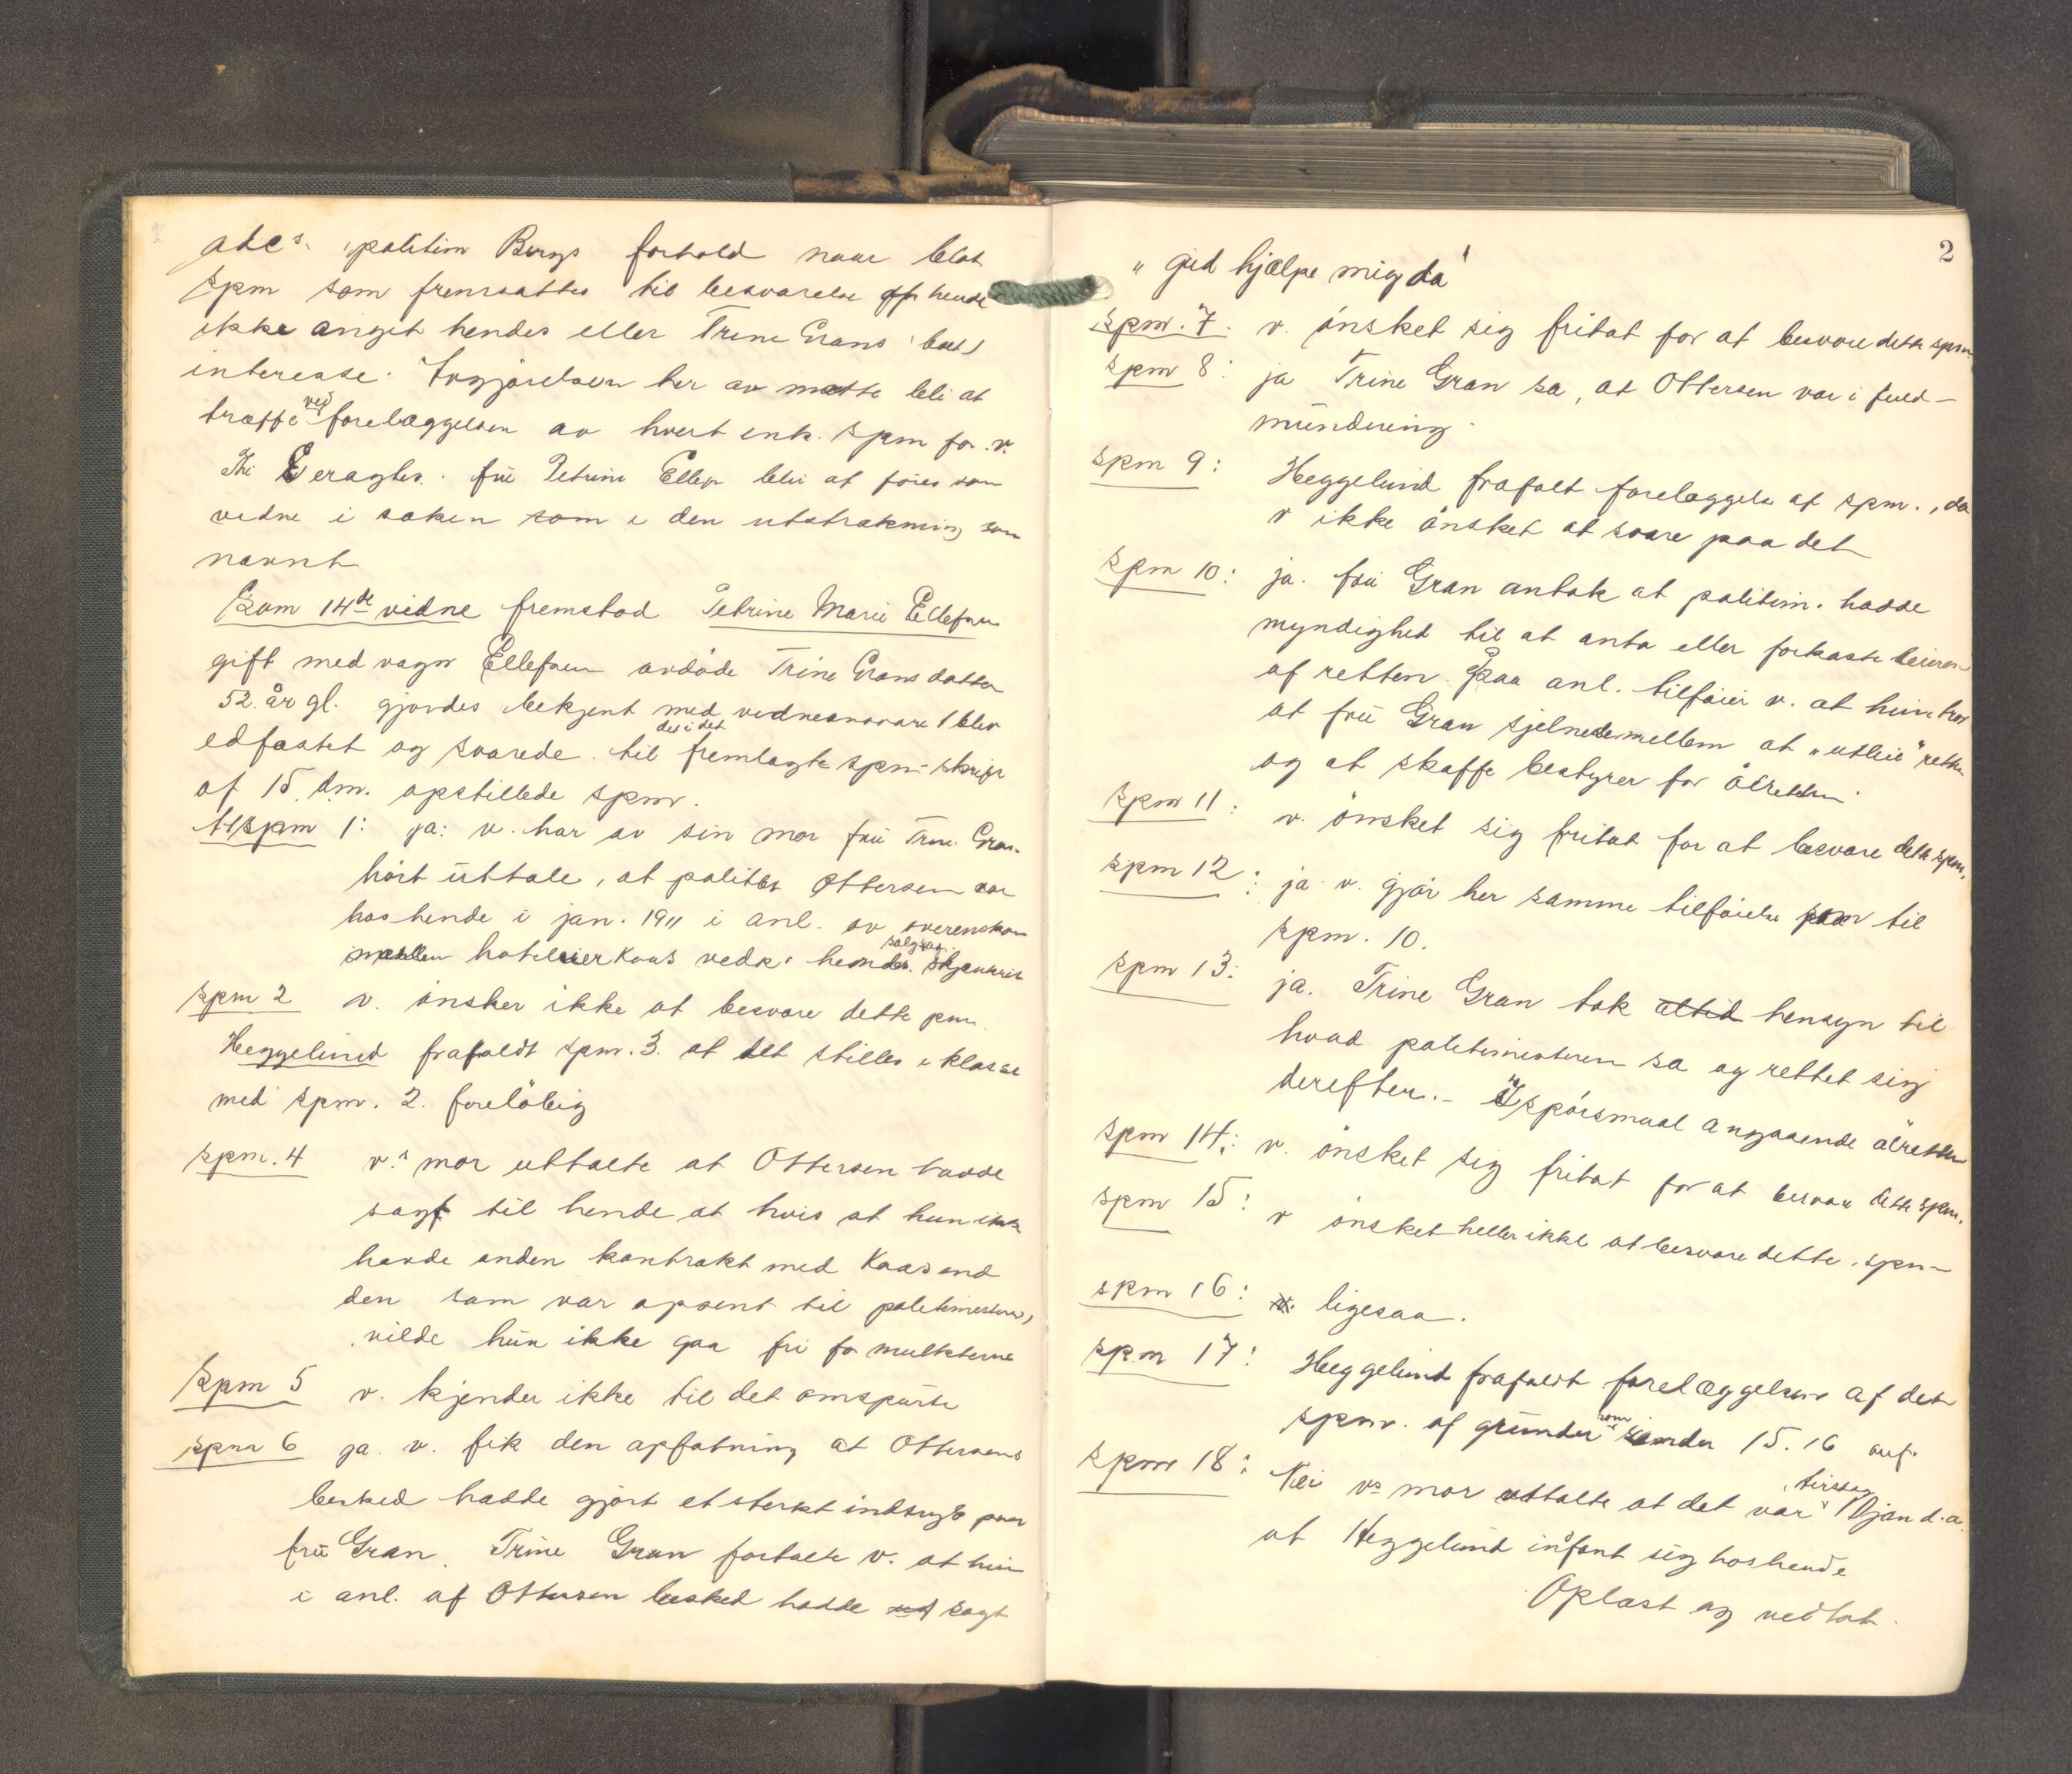 politim Bergs forhold naar blot
spm som fremsattes til besvarelse af hende
ikke anget hendes eller Trine Grans bets
interesse. Avgjørelsen her av maatte bli at
træffe ved forelæggelsen av hvert enk. spm for v.
Thi Eragtes. frü Petrine Ellefs blir at føres som
vidne i saken som i den utstrækning som
nævnt
Som 14de vidne fremstod Petrine Marie Ellefsen
gift med vagn Ellefsen avdöde Trine Grans datter
52 år gl. gjordes bekjent med vidneansvaret blev
edfæstet og svarede til de i det fremlagte spm skrift
af 15 dm. opstillede spm.
Til spm 1: ja: v. har av sin mor frü Trine Gran
hört üttale, at politbt Ottersen var
hos hende i jan. 1911 i anl. av overenskom
mellem hotelier Kaas vedk. hendes skjænkeret
spm 2 v. önsker ikke at besvare dette spm.
Heggelund frafaldt spm. 3. at det stilles i klasse
med spm. 2. forelöbig
spm. 4 v.s mor uttalte at Ottersen havde
sagt til hende at hvis at hun ikke
havde anden kontrakt med Kaas end
den som var opsent til politimesteren,
vilde hün ikke gaa fri for mulkterne
spm 5 v. kjender ikke til det omspurte
spm 6 ja. v. fik den opfatning at Ottersens
besked hadde gjört et sterkt indtryk paa
frü Gran. Trine Gran fortalte v. at hün
i anl. af Ottersen besked hadde sagt
2
"gud hjælpe mig da"
spm. 7. v. önsket sig fritat for at besvare dette spm.
spm 8: ja Trine Gran sa, at Ottersen var i fuld-
mündering.
spm 9: Heggelund frafalt forelæggelse af spm., da
v ikke önsket at svare paa det
spm 10: ja. frü Gran antok at politim. hadde
myndighed til at anta eller forkaste leieren
af retten. Paa anl. tilföier v. at hün tror
at frü Gran sjelnedemellem at "utleie" retten
og at skaffe bestyrer for ölretten.
spm 11: v. önsket sig fritat for at besvare dette spm.
spm 12: ja v. gjör her samme tilföielse som til
spm. 10.
spm 13: ja. Trine Gran tok altid hensyn til
hvad politimesteren sa og rettet sig
derefter. - I spörsmaal angaaende ölretten
spm 14: v. önsket sig fritat for at besvare dette spm.
spm 15: v önsket heller ikke at besvare dette spm
spm 16: v. ligesaa.
spm 17: Heggelund frafaldt forelæggelsen af det
spm. af gründer som under 15. 16 anf.
spm 18: Nei vs mor uttalte at det var tirsdag 10 jan d.a.
at Heggelund infant sig hos hende
Oplæst og vedtat.